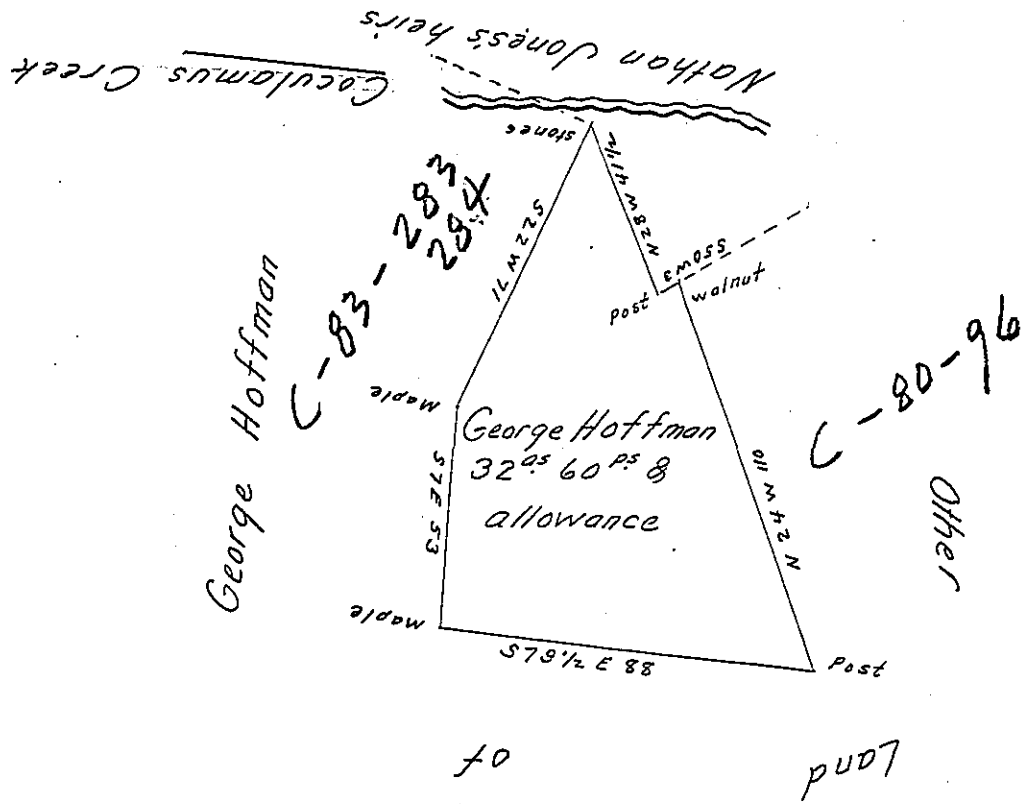 Nathan Jones's heirs
Coculamus Creek
stones
N28W 41 1/2
S22W 71
S50W3
post
walnut
C-83-283
284
George Hoffman
C-80-96
Maple
George Hoffman
32as 60ps &
allowance
S7E 53
N24W 110
Other
Maple
S79 1/2 E 88
Post
of
Land